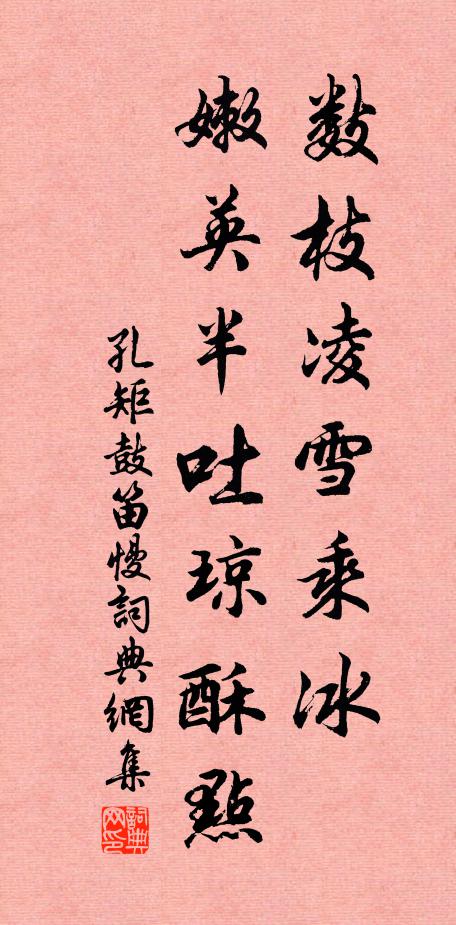 數枝凌雪乘冰
嫩英半吐瓊酥點
孔矩鼓笛慢詞典網集
詞典网印